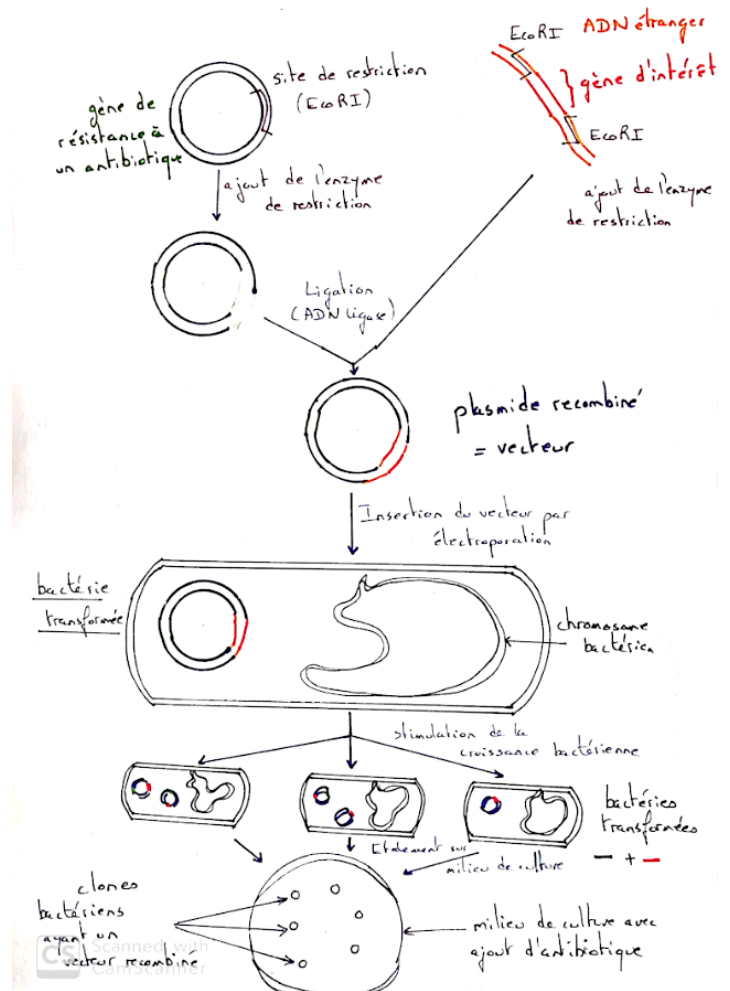 EcoRI ADN étranger
site de restriction
(EcoRI)
} gène d'intérêt
gène de
résistance à
un antibiotique
EcoRI
ajout de l'enzyme
de restriction
ajout de l'enzyme
de restriction
Ligation
(ADN ligase)
plasmide recombiné
= vecteur
Insertion du vecteur par
électroporation
bactérie
transformée
chromosome
bactérien
stimulation de la
croissance bactérienne
bactéries
transformées
- + -
Etalement sur
milieu de culture
clones
bactériens
ayant un
vecteur recombiné
milieu de culture avec
ajout d'antibiotique
CS Scanned with
CamScanner